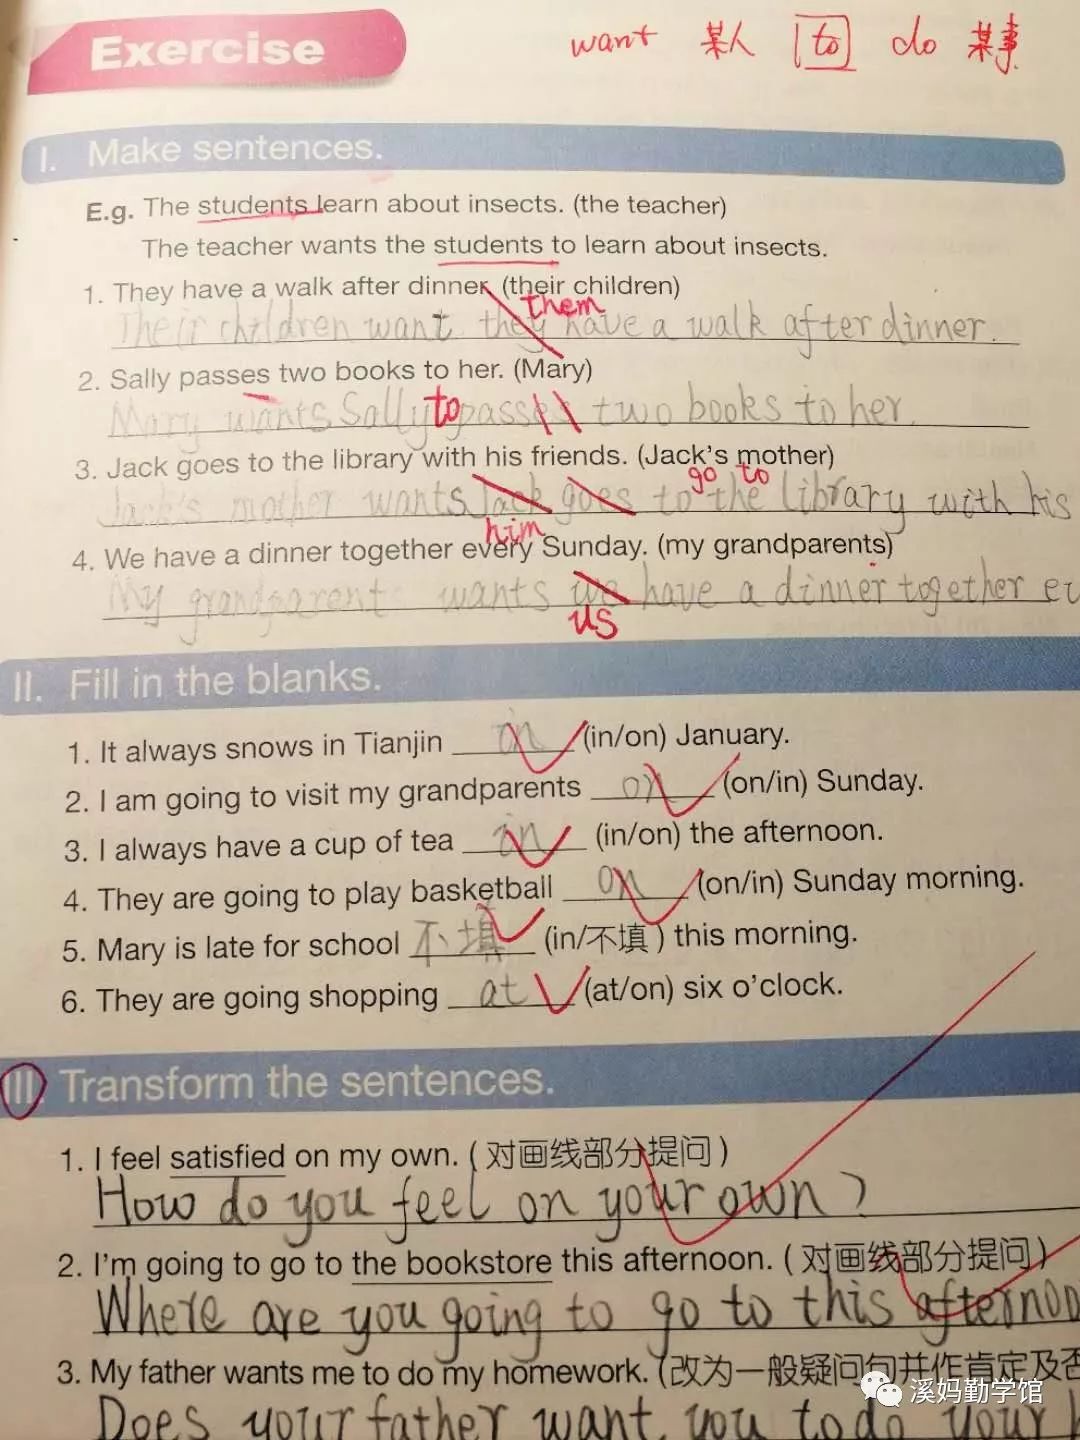 Exercise
want 某人 to do 某事
I. Make sentences.
E.g. The students learn about insects. (the teacher)
The teacher wants the students to learn about insects.
1. They have a walk after dinner. (their children)
them
Their children want they have a walk after dinner.
2. Sally passes two books to her. (Mary)
Mary wants Sally to passes two books to her.
3. Jack goes to the library with his friends. (Jack's mother)
go to
Jack's mother wants Jack goes to the library with his
him
4. We have a dinner together every Sunday. (my grandparents)
My grandparent wants we have a dinner together ev
us
II. Fill in the blanks.
1. It always snows in Tianjin in (in/on) January.
2. I am going to visit my grandparents on (on/in) Sunday.
3. I always have a cup of tea in (in/on) the afternoon.
4. They are going to play basketball on (on/in) Sunday morning.
5. Mary is late for school 不填 (in/不填) this morning.
6. They are going shopping at (at/on) six o'clock.
III. Transform the sentences.
1. I feel satisfied on my own. (对画线部分提问)
How do you feel on your own?
2. I'm going to go to the bookstore this afternoon. (对画线部分提问)
Where are you going to go to this afternoo
3. My father wants me to do my homework. (改为一般疑问句并作肯定及否
Does your father want you to do your h
溪妈勤学馆